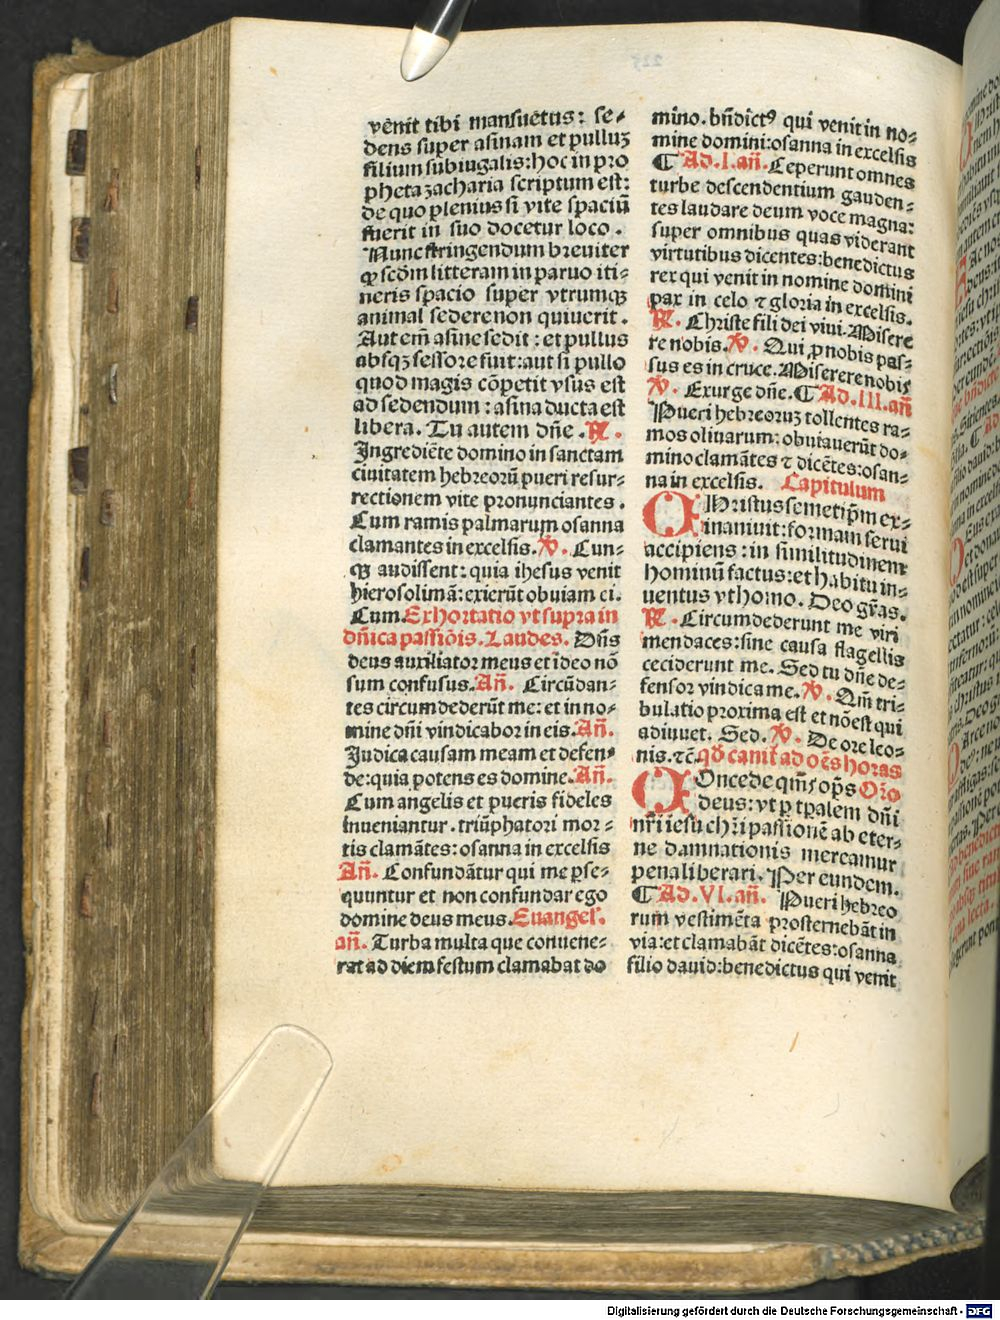 venit tibi mansuetus: se⸗
dens super asinam et pulluꝫ
filium subiugalis: hoc in pro
pheta zacharia scriptum est:
de quo plenius si vite spaciū
fuerit in suo docetur loco.
Nunc stringendum breuiter
ꝙ scd̄m litteram in paruo iti⸗
neris spacio super vtrumqꝫ
animal sedere non quiuerit.
Aut em̄ asine sedit: et pullus
absqꝫ sessore fuit: aut si pullo
quod magis cōpetit vsus est
ad sedendum: asina ducta est
libera. Tu autem dn̄e. ℟.
Ingrediēte domino in sanctam
ciuitatem hebreorū pueri resur⸗
rectionem vite pronunciantes.
Cum ramis palmarum osanna
clamantes in excelsis. ℣. Cun⸗
qꝫ audissent: quia ihesus venit
hierosolimā: exierūt obuiam ei.
Cum. Exhortatio vt supra in
dn̄ica passiōis. Laudes. Dn̄s
deus auxiliator meus et ideo nō
sum confusus. An̄. Circūdan⸗
tes circumdederūt me: et in no⸗
mine dn̄i vindicabor in eis. An̄.
Iudica causam meam et defen⸗
de: quia potens es domine. An̄.
Cum angelis et pueris fideles
inueniantur. triūphatori mor⸗
tis clamātes: osanna in excelsis
An̄. Confundātur qui me ꝑse⸗
quuntur et non confundar ego
domine deus meus. Euangel'.
an̄. Turba multa que conuene⸗
rat ad diem festum clamabat do
mino. bn̄dictꝰ qui venit in no⸗
mine domini: osanna in excelsis
¶ Ad. I. an̄. Ceperunt omnes
turbe descendentium gauden⸗
tes laudare deum voce magna:
super omnibus quas viderant
virtutibus dicentes: benedictus
rex qui venit in nomine domini
pax in celo ⁊ gloria in excelsis.
℟. Christe fili dei viui. Misere
re nobis. ℣. Qui ꝓ nobis pas⸗
sus es in cruce. Miserere nobis
℣. Exurge dn̄e. ¶ Ad. III. an̄
Pueri hebreoruꝫ tollentes ra⸗
mos oliuarum: obuiauerūt do⸗
mino clamātes ⁊ dicētes: osan⸗
na in excelsis. Capitulum
CHristus semetip̄m ex⸗
inaniuit: formam serui
accipiens: in similitudinem
hominū factus: et habitu in⸗
uentus vt homo. Deo gr̄as.
℟. Circumdederunt me viri
mendaces: sine causa flagellis
ceciderunt me. Sed tu dn̄e de⸗
fensor vindica me. ℣. Qm̄ tri⸗
bulatio proxima est et nō est qui
adiuuet. Sed. ℣. De ore leo⸗
nis. ⁊c̄. qd̄ canit᷑ ad oēs horas
COncede qm̄s op̄s Oro
deus: vt ꝑ tp̄alem dn̄i
nr̄i iesu chr̄i passionē ab eter⸗
ne damnationis mereamur
pena liberari. Per eundem.
¶ Ad. VI. an̄. Pueri hebreo
rum vestimēta prosternebāt in
via: et clamabāt dicētes: osanna
filio dauid: benedictus qui venit
Digitalisierung gefördert durch die Deutsche Forschungsgemeinschaft - DFG